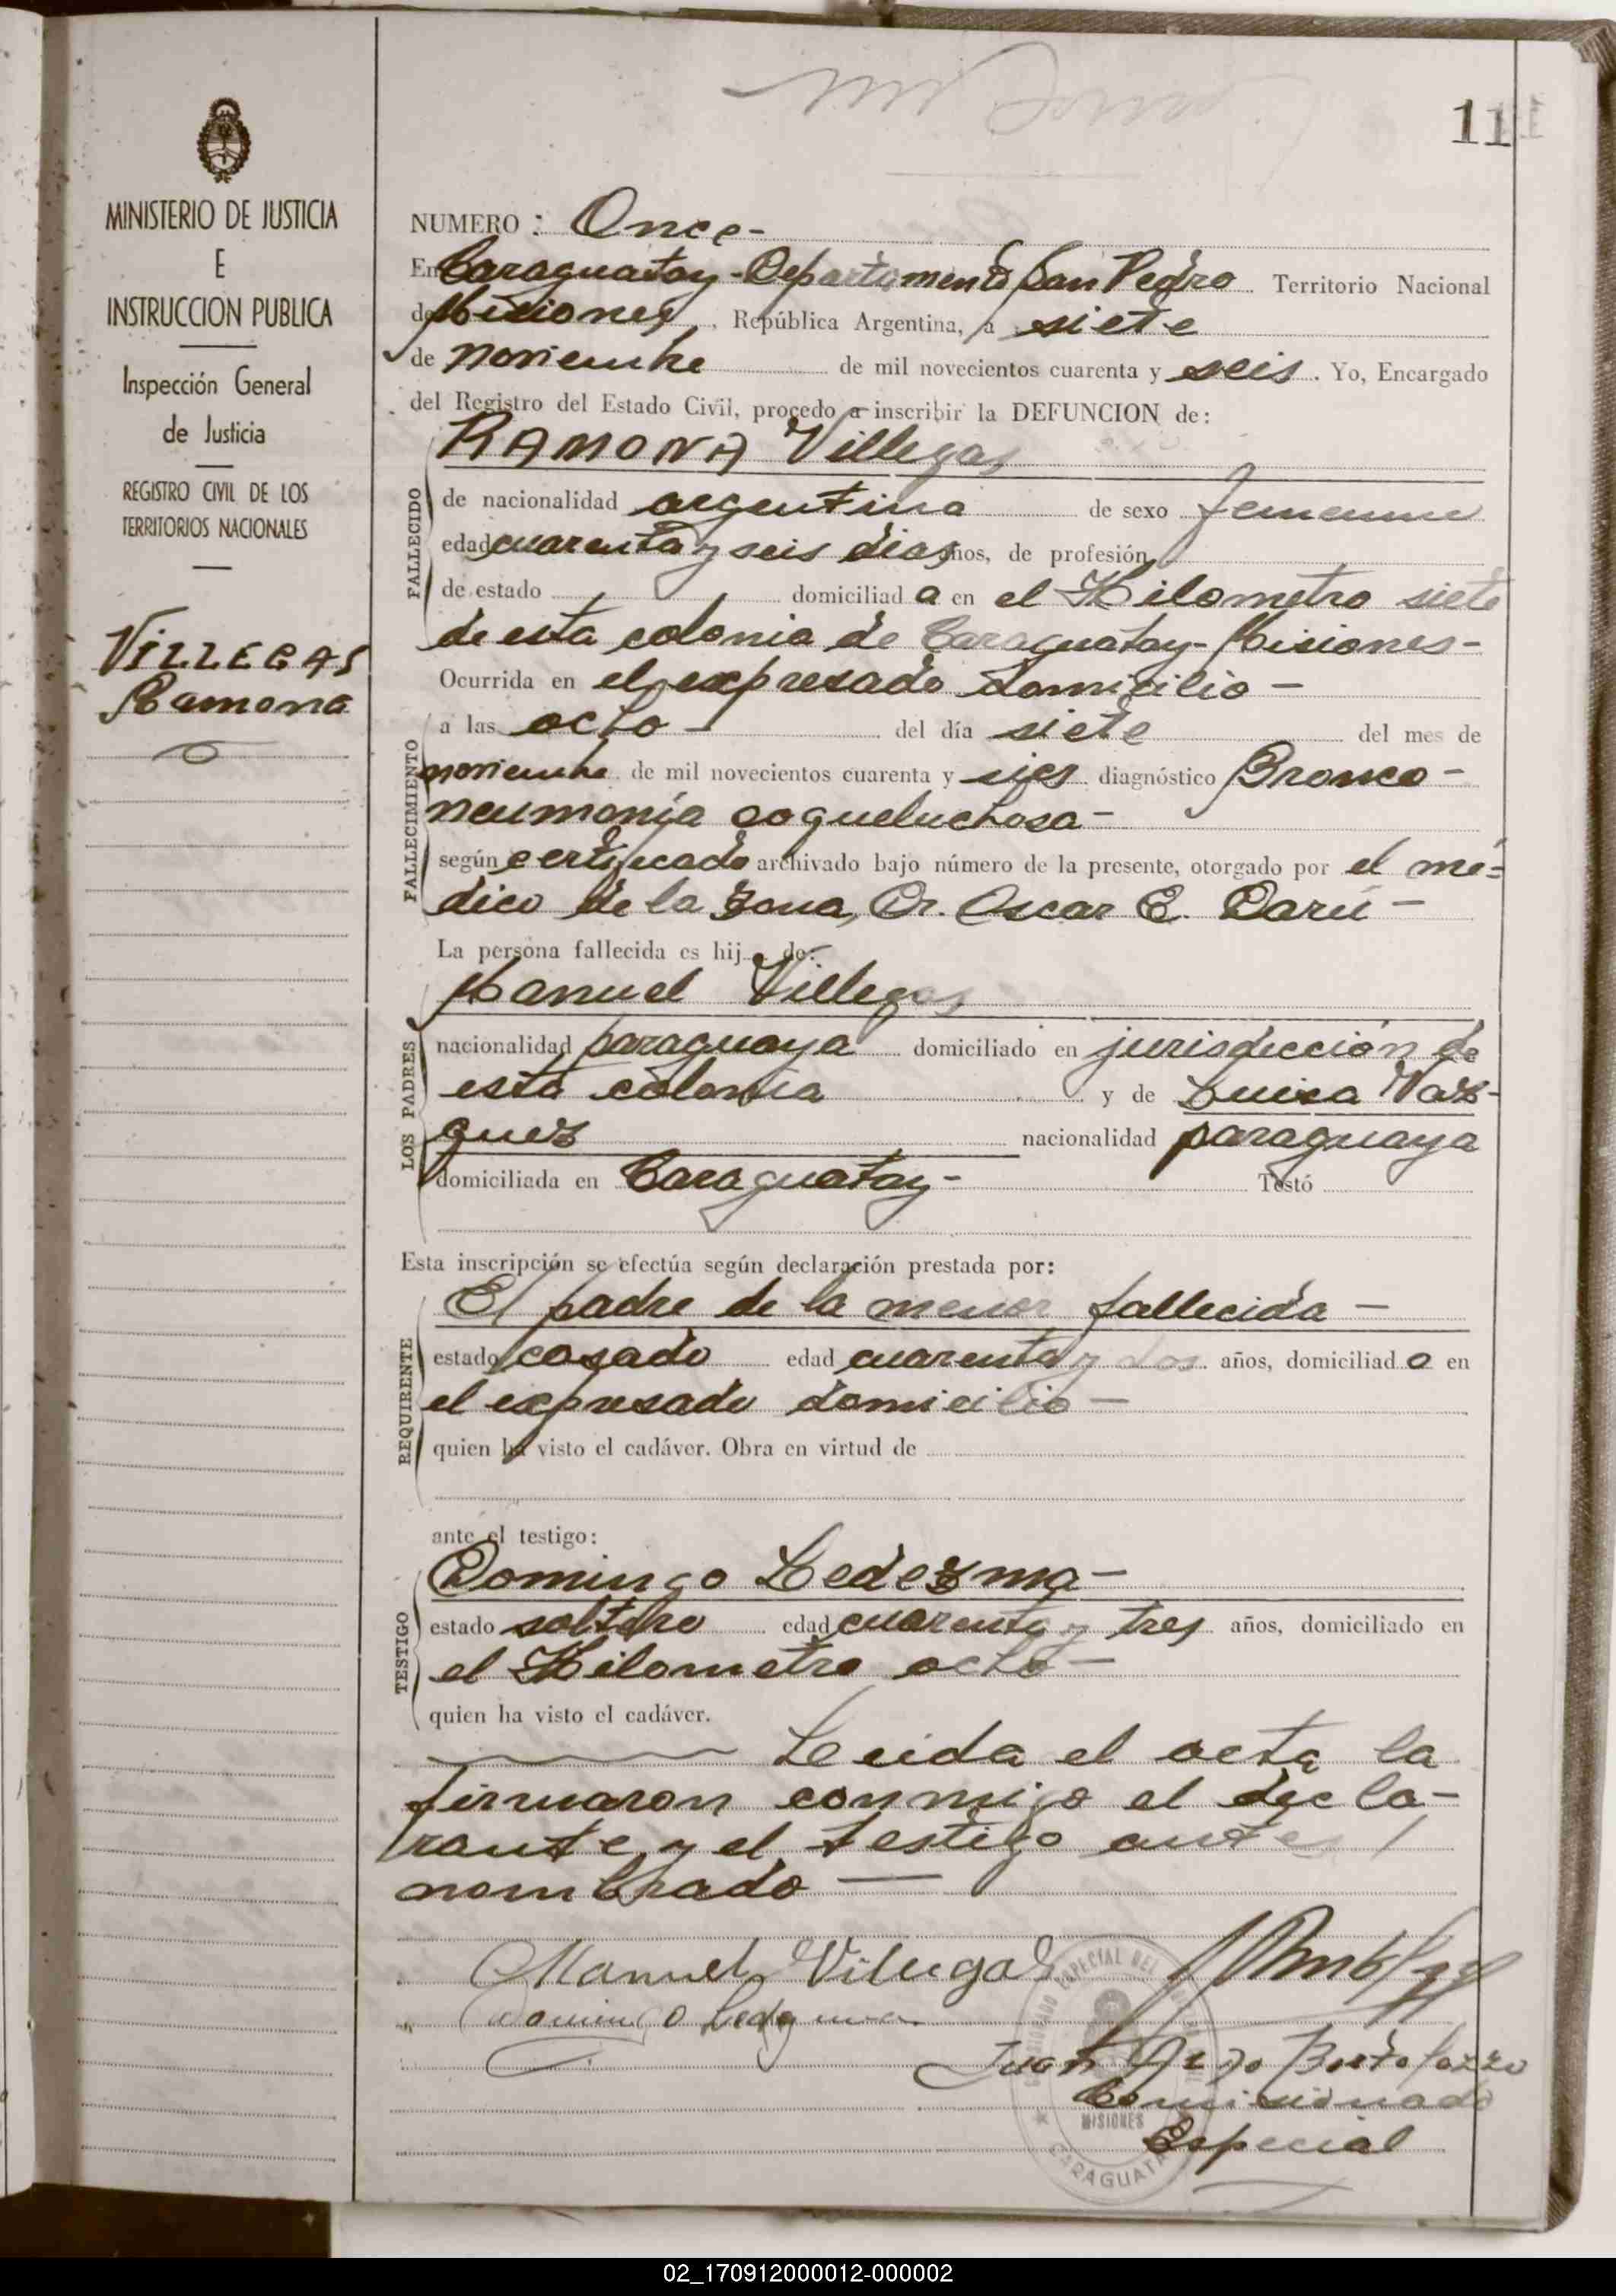 11
MINISTERIO DE JUSTICIA
E
INSTRUCCION PUBLICA
Inspección General
de Justicia
REGISTRO CIVIL DE LOS
TERRITORIOS NACIONALES
VILLEGAS
Ramona
NUMERO: Once-
En Caraguatay-Departamento San Pedro Territorio Nacional
de Misiones, República Argentina, a siete
de noviembre de mil novecientos cuarenta y seis. Yo, Encargado
del Registro del Estado Civil, procedo a inscribir la DEFUNCION de:
RAMONA Villegas
FALLECIDO
de nacionalidad argentina de sexo femenino
edad cuarenta y seis dias años, de profesión
de estado domiciliada en el Kilometro siete
de esta colonia de Caraguatay-Misiones-
Ocurrida en el expresado domicilio-
FALLECIMIENTO
a las ocho- del día siete del mes de
noviembre de mil novecientos cuarenta y sies diagnóstico Bronco-
neumonía coqueluchosa-
según certificado archivado bajo número de la presente, otorgado por el mé-
dico de la zona, Dr. Oscar E. Darú-
La persona fallecida es hija de:
Manuel Villegas
LOS PADRES
nacionalidad paraguaya domiciliado en jurisdicción de
esta colonia y de Luisa Vaz-
quez nacionalidad paraguaya
domiciliada en Caraguatay- Testó
Esta inscripción se efectúa según declaración prestada por:
El padre de la menor fallecida-
REQUIRENTE
estado casado edad cuarenta y dos años, domiciliado en
el expresado domicilio-
quien ha visto el cadáver. Obra en virtud de
ante el testigo:
Domingo Ledezma-
TESTIGO
estado soltero edad cuarenta y tres años, domiciliado en
el Kilometro ocho-
quien ha visto el cadáver.
Leida el acta la
firmaron conmigo el decla-
rante y el testigo antes
nombrado
Manuel Villegas
Domingo Ledezma
Juan Bortolozzo
Comisionado
Especial
MISIONES
CARAGUATAY
02_170912000012-000002